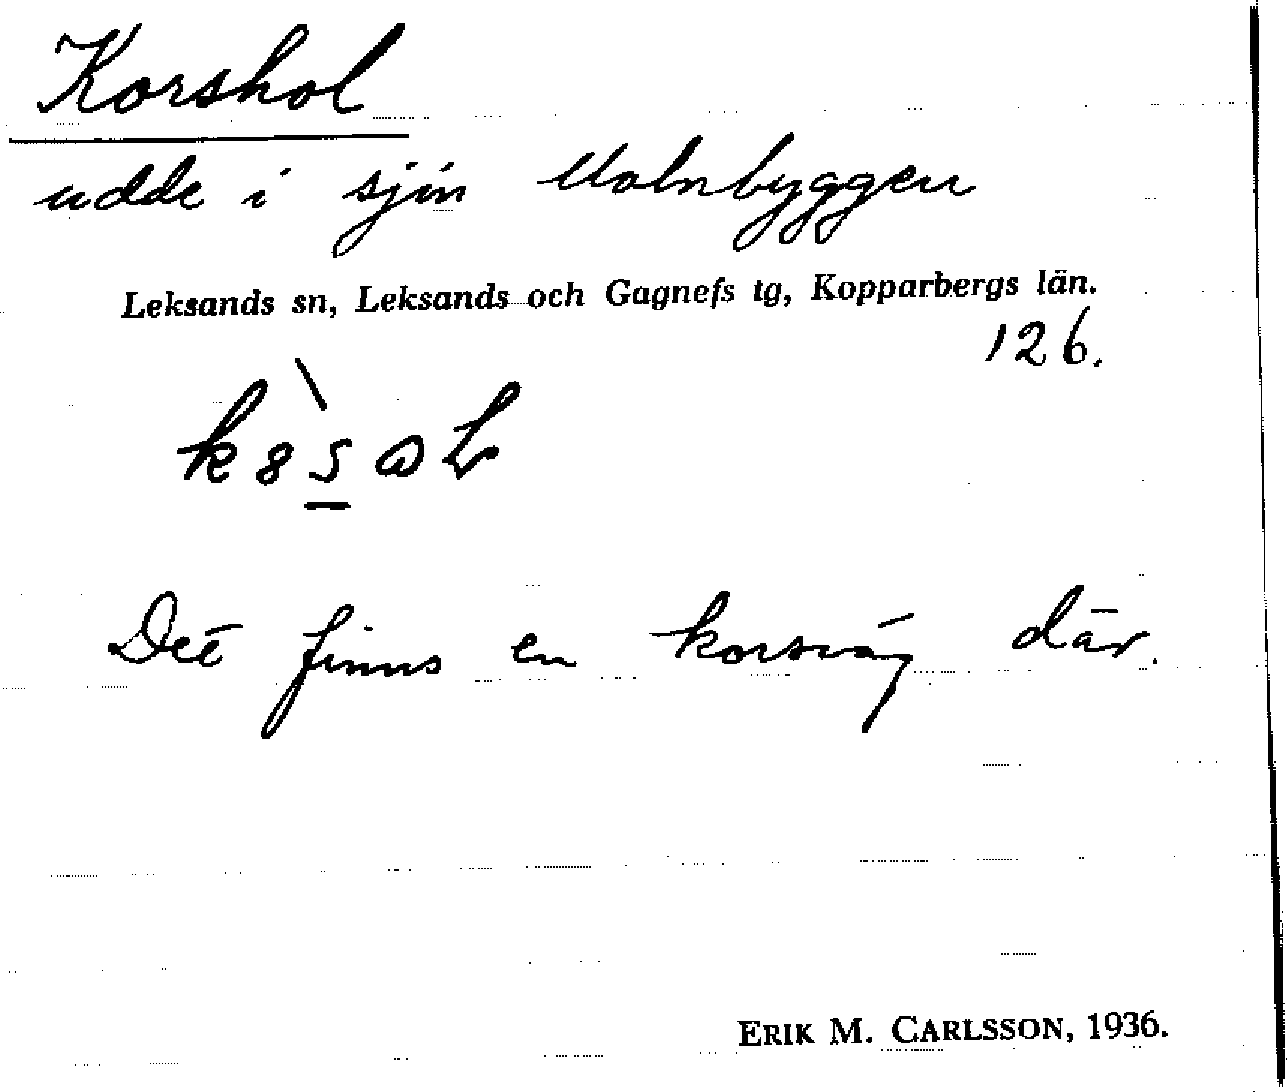 Korshol
udde i sjön Molnbyggen
Leksands sn, Leksands och Gagnefs tg, Kopparbergs län.
126.
Det finns en korsväg där.
ERIK M. CARLSSON, 1936.